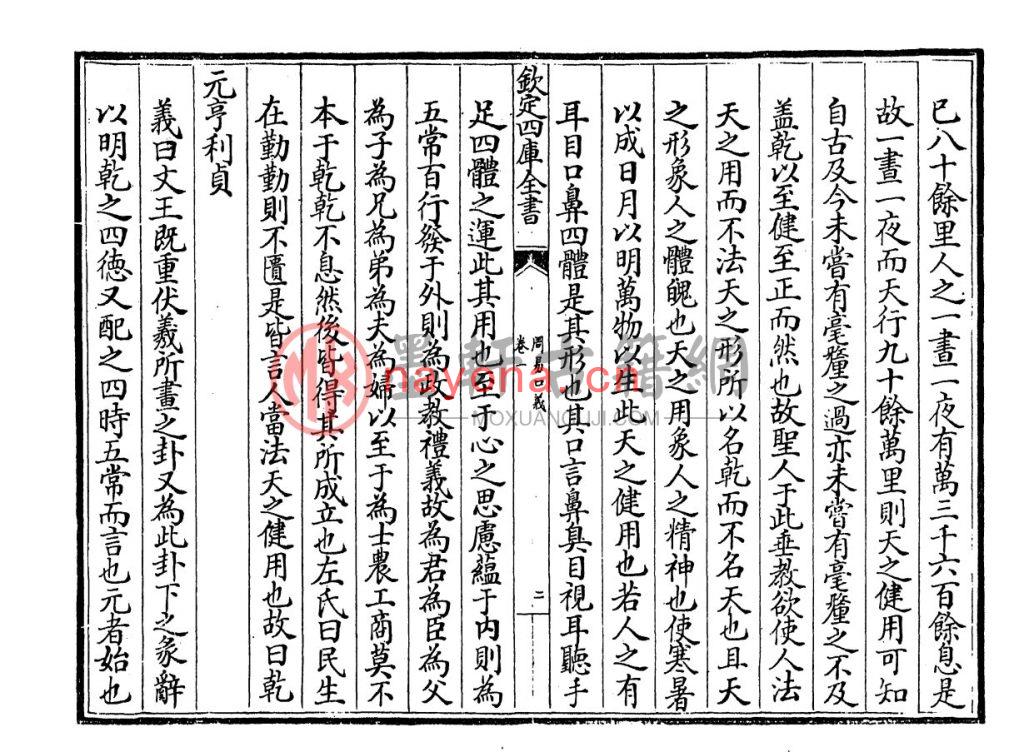 已八十餘里人之一晝一夜有萬三千六百餘息是
故一晝一夜而天行九十餘萬里則天之健用可知
自古及今未嘗有毫釐之過亦未嘗有毫釐之不及
盖乾以至健至正而然也故聖人于此垂教欲使人法
天之用而不法天之形所以名乾而不名天也且天
之形象人之體魄也天之用象人之精神也使寒暑
以成日月以明萬物以生此天之健用也若人之有
耳目口鼻四體是其形也其口言鼻臭目視耳聽手
欽定四庫全書
周易口義
卷一
二
足四體之運此其用也至于心之思慮蘊于内則為
五常百行發于外則為政教禮義故為君為臣為父
為子為兄為弟為夫為婦以至于為士農工商莫不
本于乾乾不息然後皆得其所成立也左氏曰民生
在勤勤則不匱是皆言人當法天之健用也故曰乾
元亨利貞
義曰文王既重伏羲所畫之卦又為此卦下之彖辭
以明乾之四徳又配之四時五常而言也元者始也
墨軒古籍網
nayona.cn
MOXUANGUJI.COM